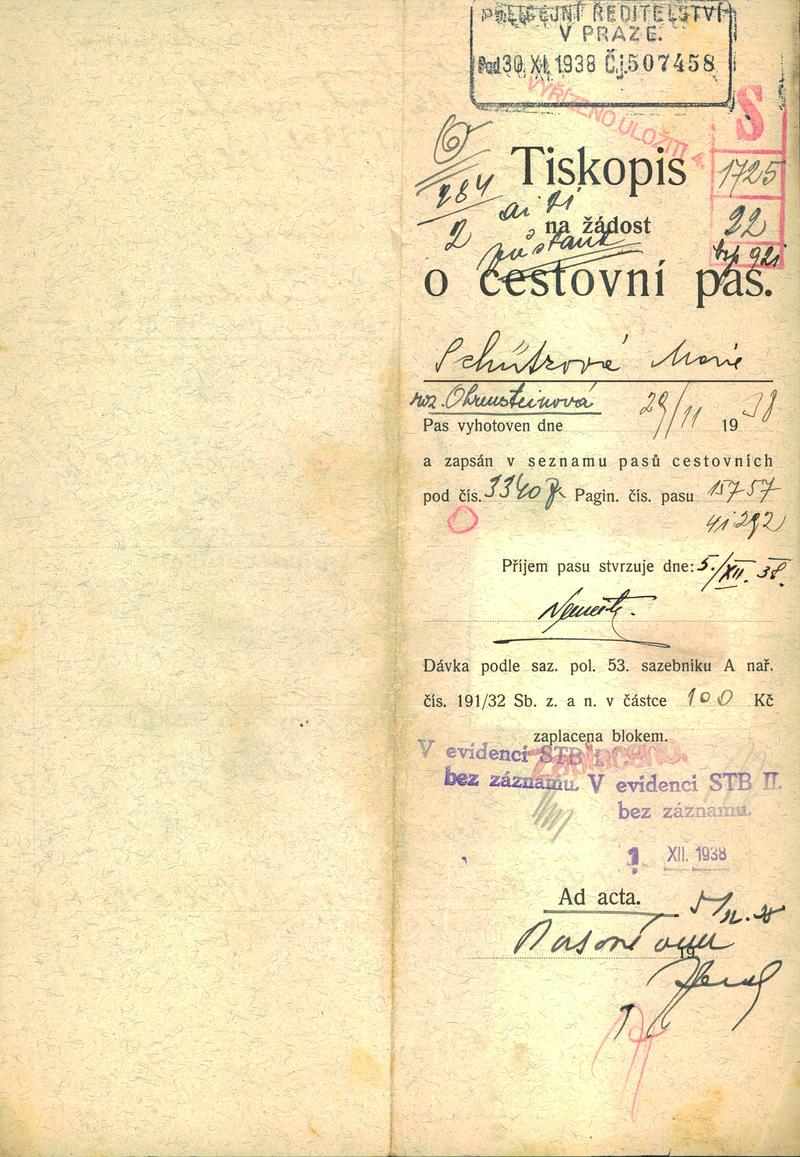 POLICEJNÍ ŘEDITELSTVÍ
V PRAZE.
Pod 30 XI. 1938 Čj. 507458
VYŘÍZENO ULOŽITI
S
1725
22
284
2
Tiskopis
na žádost
o cestovní pas.
Schützová Marie
roz. Ohrensteinová
Pas vyhotoven dne 29/11 1938
a zapsán v seznamu pasů cestovních
pod čís. 3340 Pagin. čís. pasu 15757
41292
Příjem pasu stvrzuje dne: 5./XII. 38.
Dávka podle saz. pol. 53. sazebníku A nař.
čís. 191/32 Sb. z. a n. v částce 100 Kč
zaplacena blokem.
Zaplaceno.
V evidenci STB I.
bez záznamu.
V evidenci STB II.
bez záznamu.
1 XII. 1938
Ad acta.
19